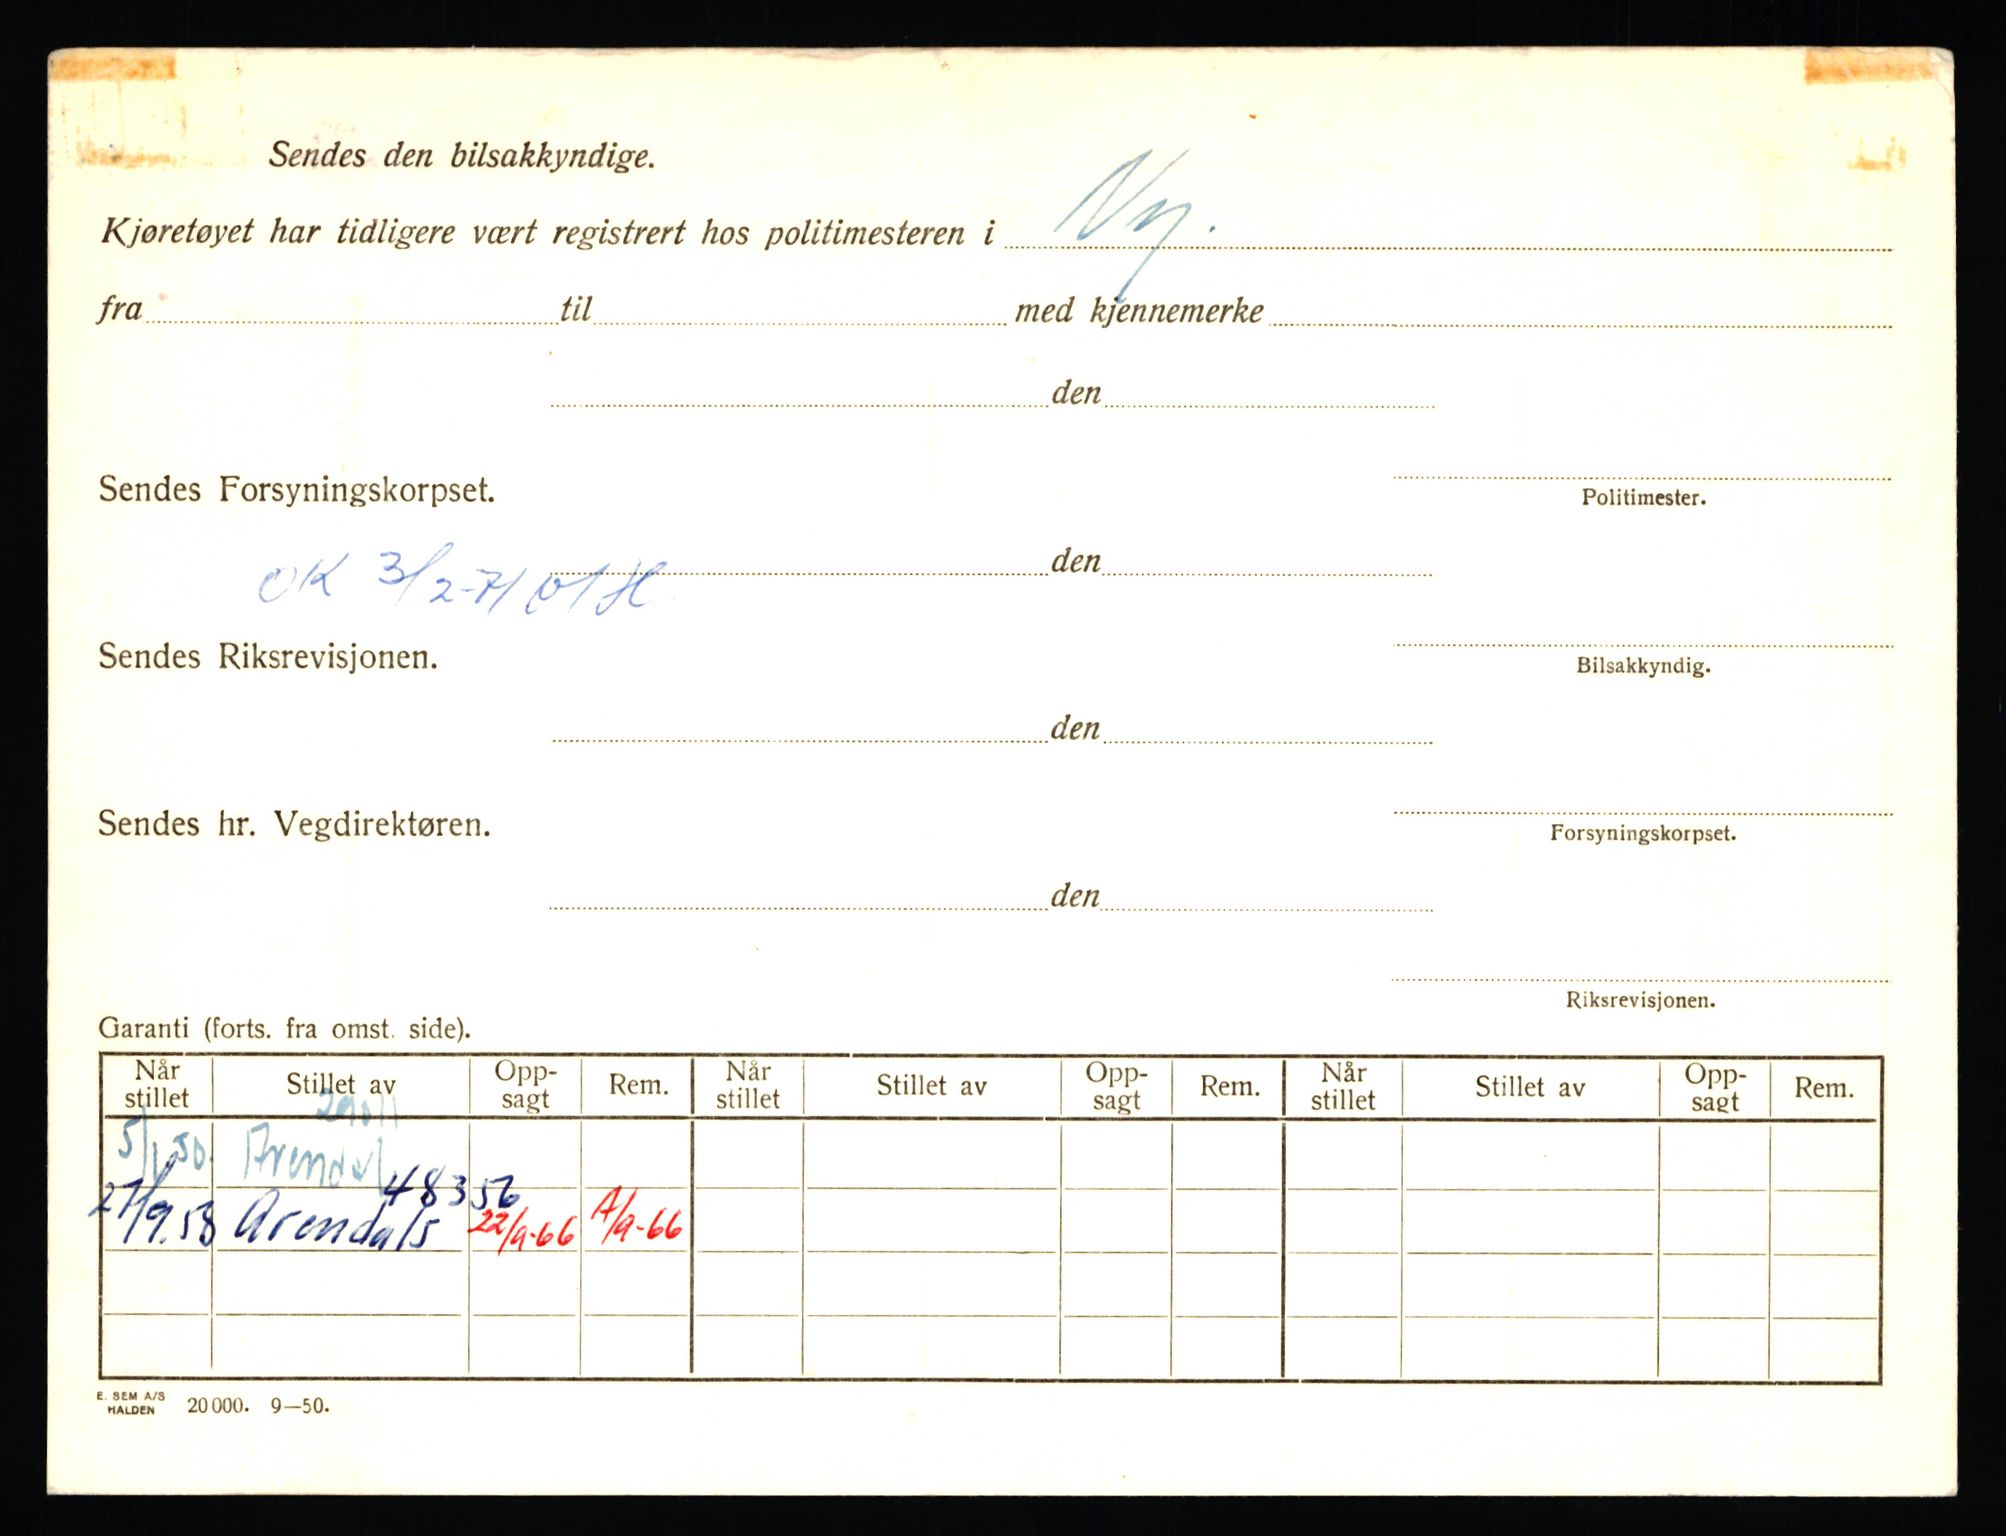 Sendes den bilsakkyndige.
Kjøretøyet har tidligere vært registrert hos politimesteren i Ny.
fra til med kjennemerke
den
Sendes Forsyningskorpset.
Politimester.
OK 3/2-71
den
Sendes Riksrevisjonen.
Bilsakkyndig.
den
Sendes hr. Vegdirektøren.
Forsyningskorpset.
den
Riksrevisjonen.
Garanti (forts. fra omst. side).
Når stillet Stillet av Opp- sagt Rem. Når stillet Stillet av Opp- sagt Rem. Når stillet Stillet av Opp- sagt Rem.
Arendal
48356
27/9.58 Arendals 22/9-66 /9-66
E. SEM A/S
HALDEN 20 000. 9—50.